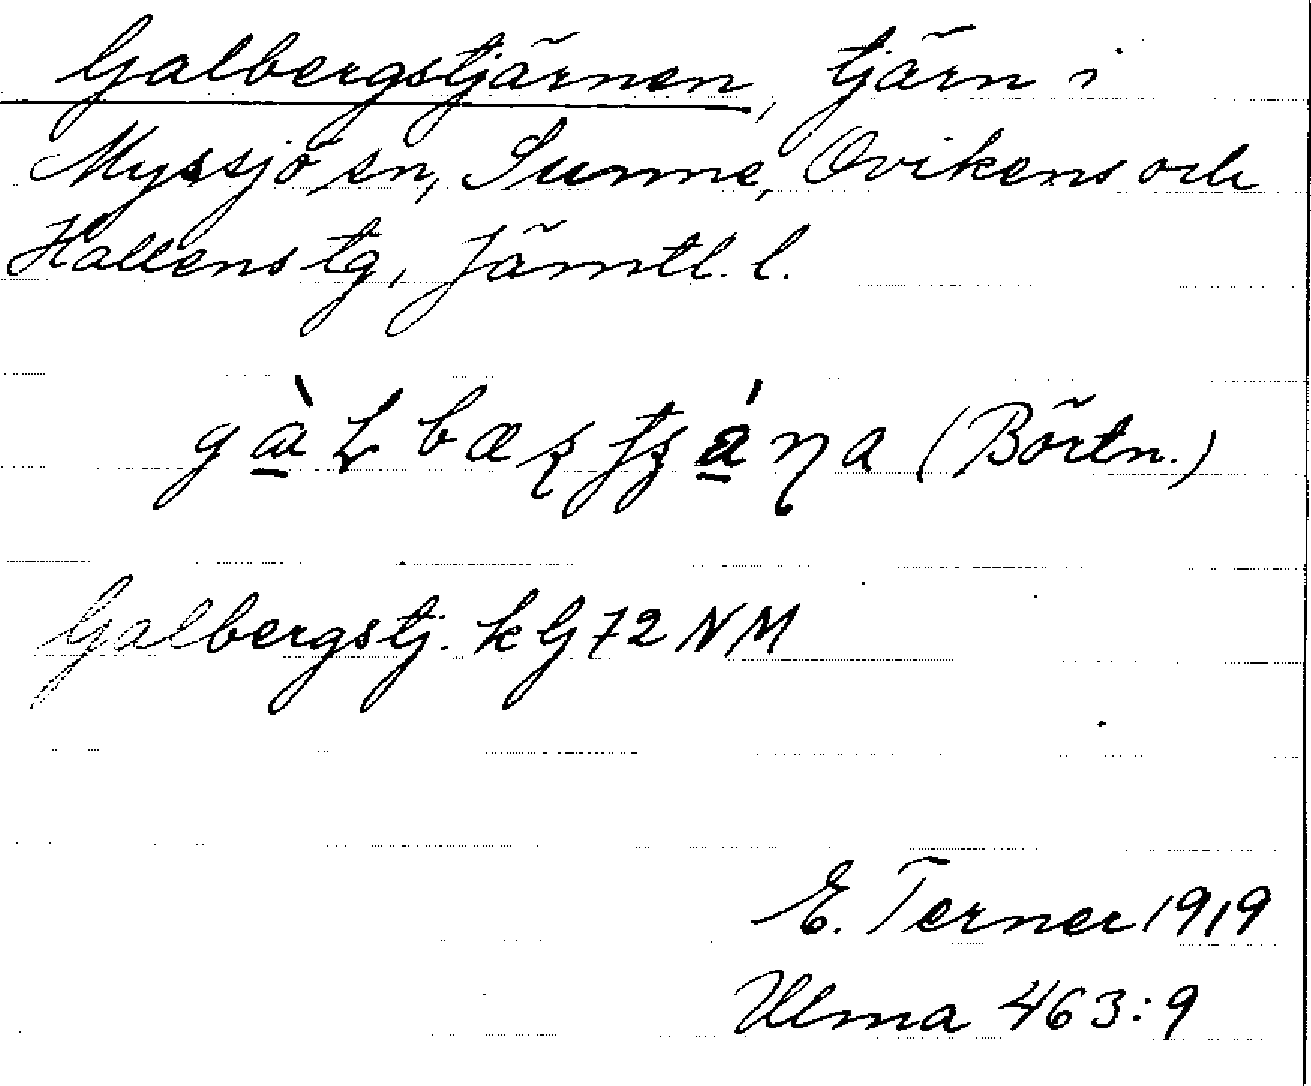 Galbergstjärnen, tjärn i
Myssjö sn, Sunne, Ovikens och
Hallens tg, Jämtl. l.
(Börtn.)
Galbergstj. k G 72 NM
E. Terner 1919
Ulma 463:9